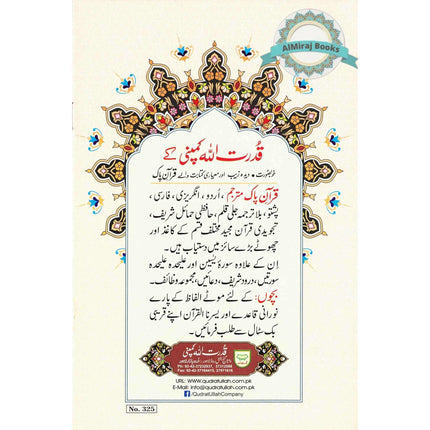 AlMiraj Books
قدرت اللہ کمپنی کے
خوبصورت • دیدہ زیب اور معیاری کتابت والے قرآن پاک
قرآن پاک مترجم ، اُردو ، انگریزی ، فارسی ،
پشتو ، بلا ترجمہ جلی قلم ، حافظی حمائل شریف ،
تجویدی قرآن مجید مختلف قسم کے کاغذ اور
چھوٹے بڑے سائز میں دستیاب ہیں۔
اِن کے علاوہ سورۃ یٰسین اور علیحدہ علیحدہ
سورتیں ، درود شریف ، دعائیں ، مجموعہ وظائف۔
بچوں: کے لئے موٹے الفاظ کے پارے
نورانی قاعدے اور یسرنا القرآن اپنے قریبی
بک سٹال سے طلب فرمائیں۔
قدرت اللہ کمپنی
URL: www.qudratullah.com.pk
E-Mail: info@qudratullah.com.pk
/QudratUllahCompany
No. 325